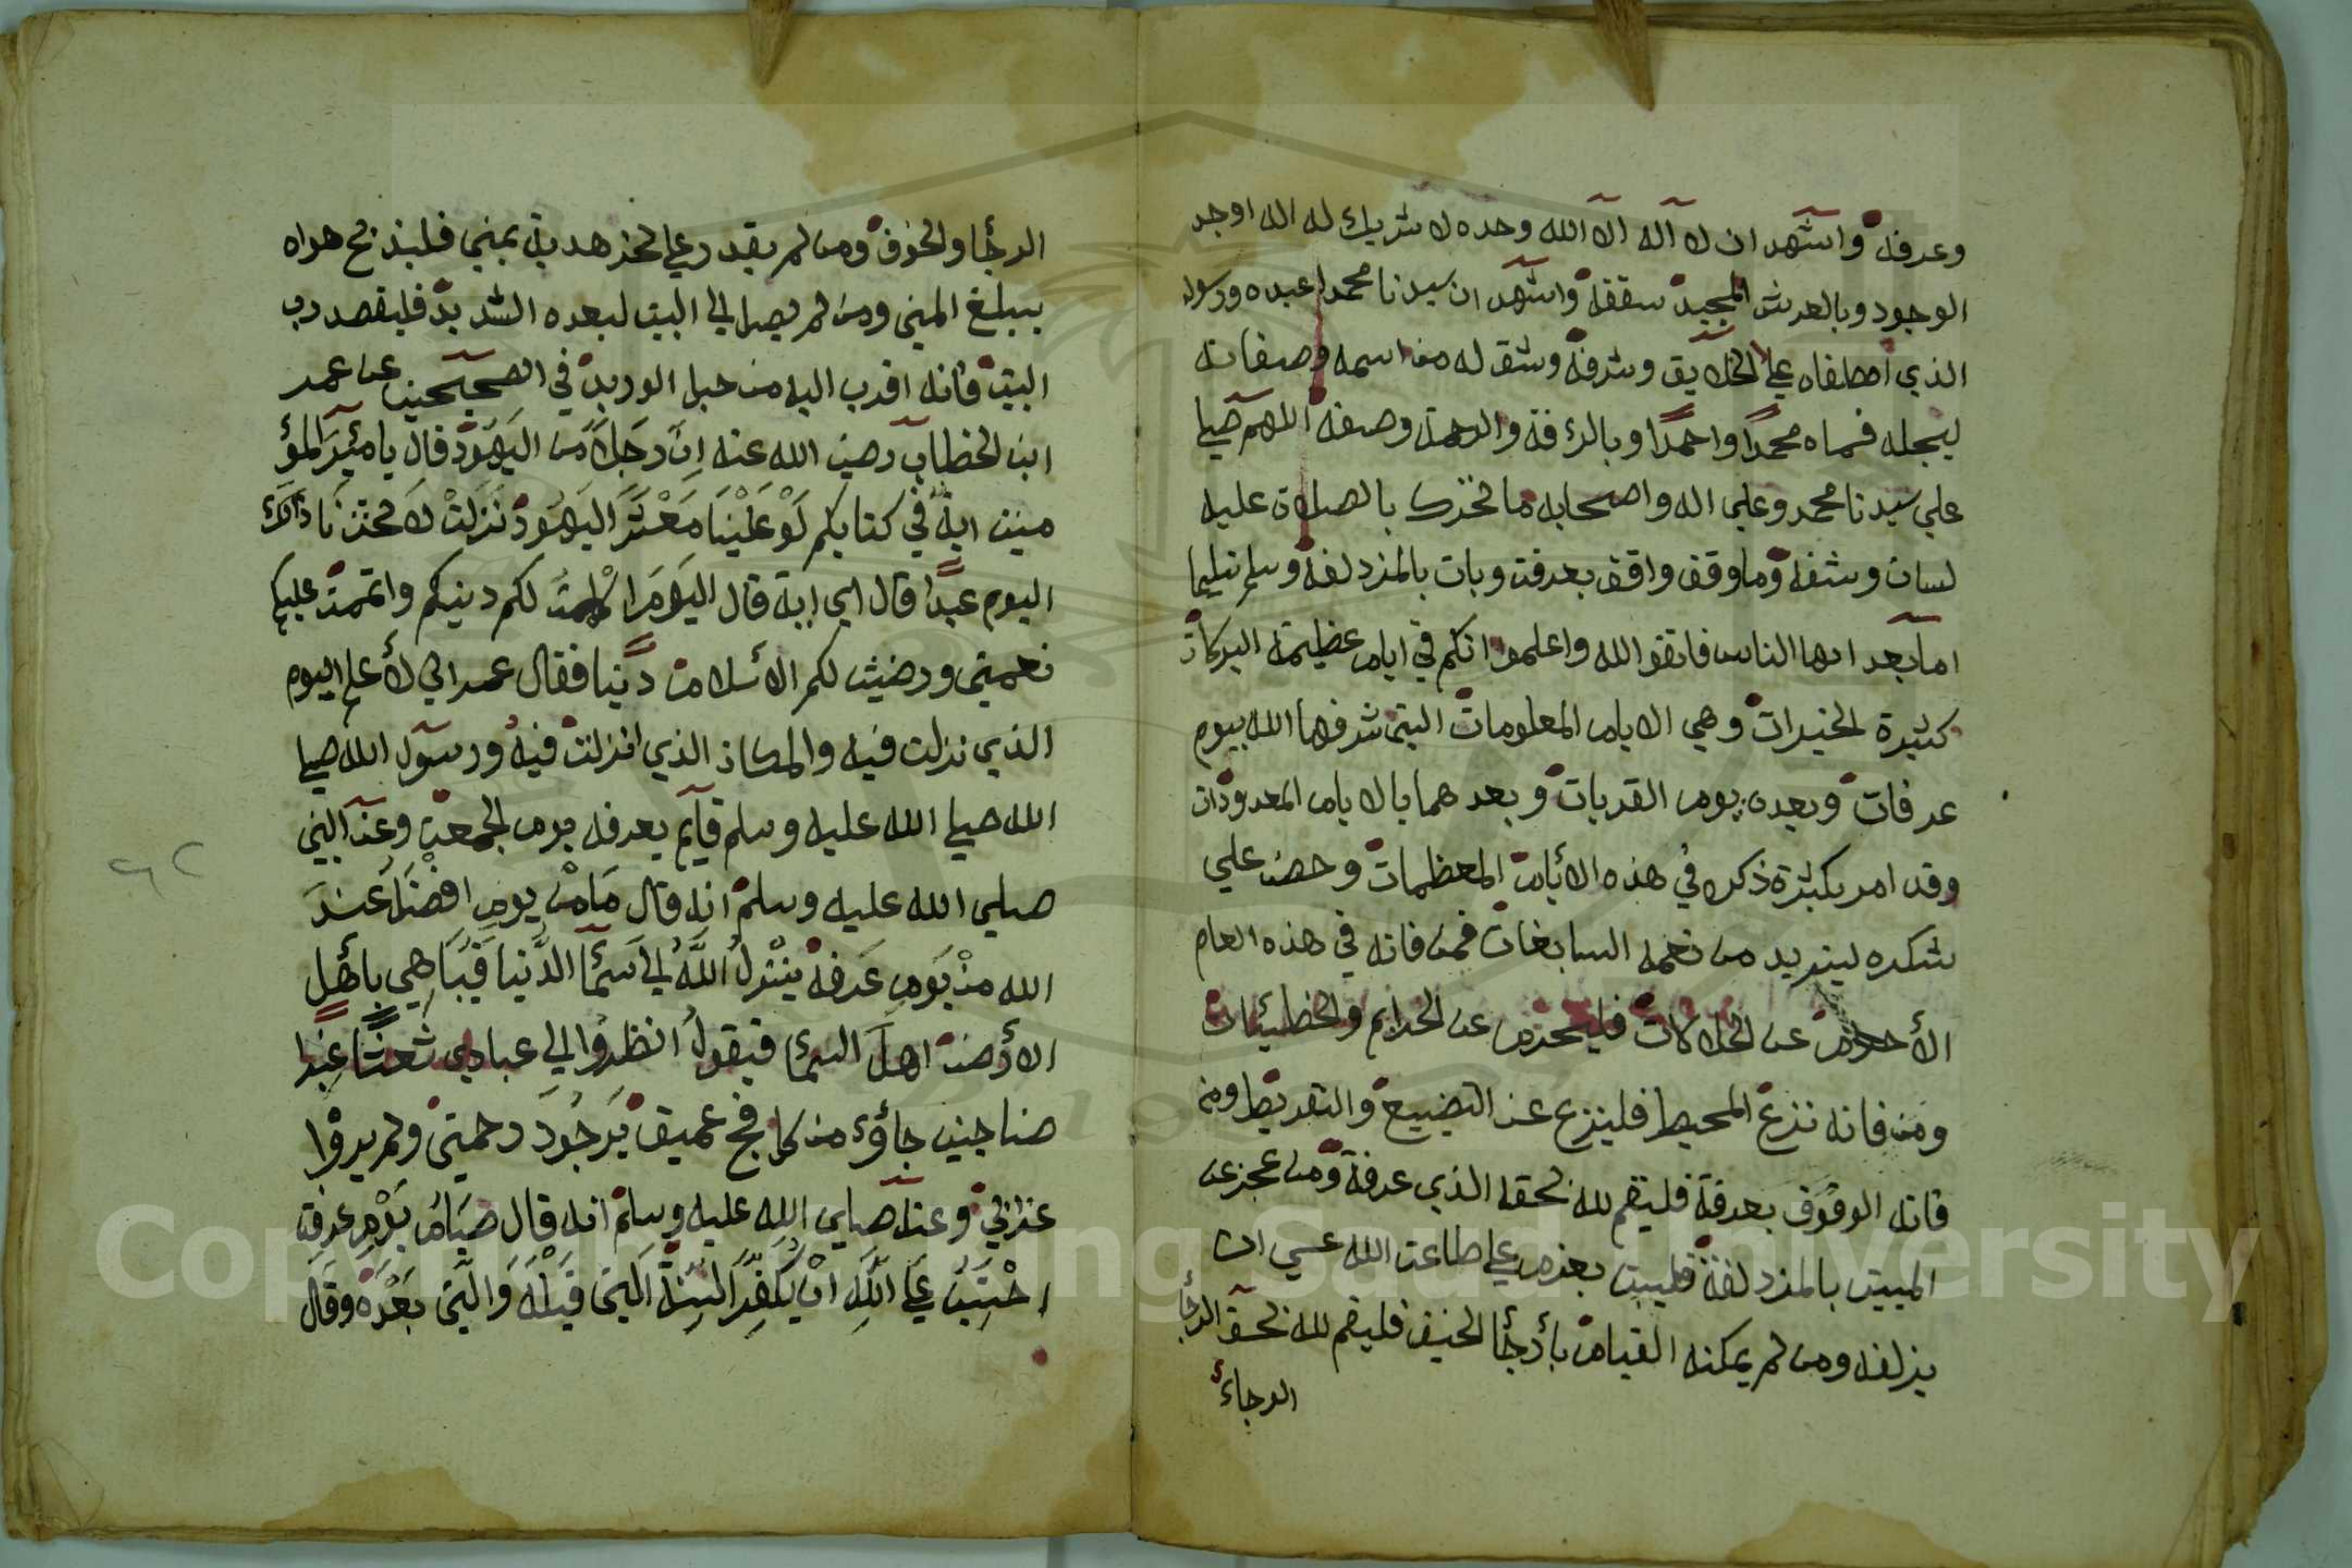 وعرفة واشهد ان لا اله الا الله وحده لا شريك له اله اوجد
الوجود وبالعرش المجيد سقفه واشهد ان سيدنا محمدا عبده ورسوله
الذي اصطفاه علي الخلايق وشرفة وشق له من اسمه وصفاته
ليجله فسماه محمدا واحمدا وبالرؤفة والرحمة وصفه اللهم صلي
علي سيدنا محمد وعلي اله واصحابه ما تحرك بالصلاة عليه
لسان وشفه وما وقف واقف بعرفة وبات بالمزدلفة وسلم تسليما
اما بعد ايها الناس فاتقوا الله واعلموا انكم في ايام عظيمة البركات
كثيرة الخيرات وهي الايام المعلومات التي شرفها الله بيوم
عرفات وبعده يوم القربات وبعد هما بالايام المعدودات
وقد امر بكثرة ذكره في هذه الأيام المعظمات وحض علي
شكره ليزيد من نعمه السابغات فمن فاته في هذه العام
الأحرام عن الحلالات فليحرم عن الحرايم والخطيئات
ومن فاته نزع المحيط فلينزع عن التضييع والتفريط ومن
فاته الوقوف بعرفة فليقم لله بحقه الذي عرفة ومن عجز عن
المبيت بالمزدلفة فليبت بعزم علي طاعت الله عسي ان
يزلفه ومن لم يمكنه القيام بأرجأ الخيف فليقم لله بحق الرجأ
الرجاء
الرجأ والخوف ومن لم يقدر علي نحر هديه بمني فليذبح هواه
يبلغ المني ومن لم يصل الي البيت لبعده الشديد فليقصد رب
البيت فانه اقرب اليه من حبل الوريد في الصحيحين عن عمر
ابن الخطاب رضي الله عنه ان رجلا من اليهود قال يا مئير المؤ
منين اية في كتابكم لو علينا معشر اليهود نزلت لاتخذنا ذالك
اليوم عيدا قال اي اية قال اليوم اكملت لكم دينكم واتممت عليكم
نعمتي ورضيت لكم الأسلام دينا فقال عمر اني لأعلم اليوم
الذي نزلت فيه والمكان الذي انزلت فيه ورسول الله صلي
الله صلي الله عليه وسلم قايم بعرفه يوم الجمعة وعن النبي
صلي الله عليه وسلم انه قال ما من يوم افضل عند
الله من يوم عرفة ينزل الله الي سمأ الدنيا فيباهي بأهل
الأرض اهل السمأ فيقول انظروا الي عبادي شعثا غبرا
ضاجين جاؤء من كل فج عميق يرجون رحمتي ولم يروا
عذابي وعنه صلي الله عليه وسلم انه قال صيام يوم عرفة
احتسب علي الله ان يكفر السنة التي قبله والتي بعده وقال
٦٢
Copyright © King Saud University